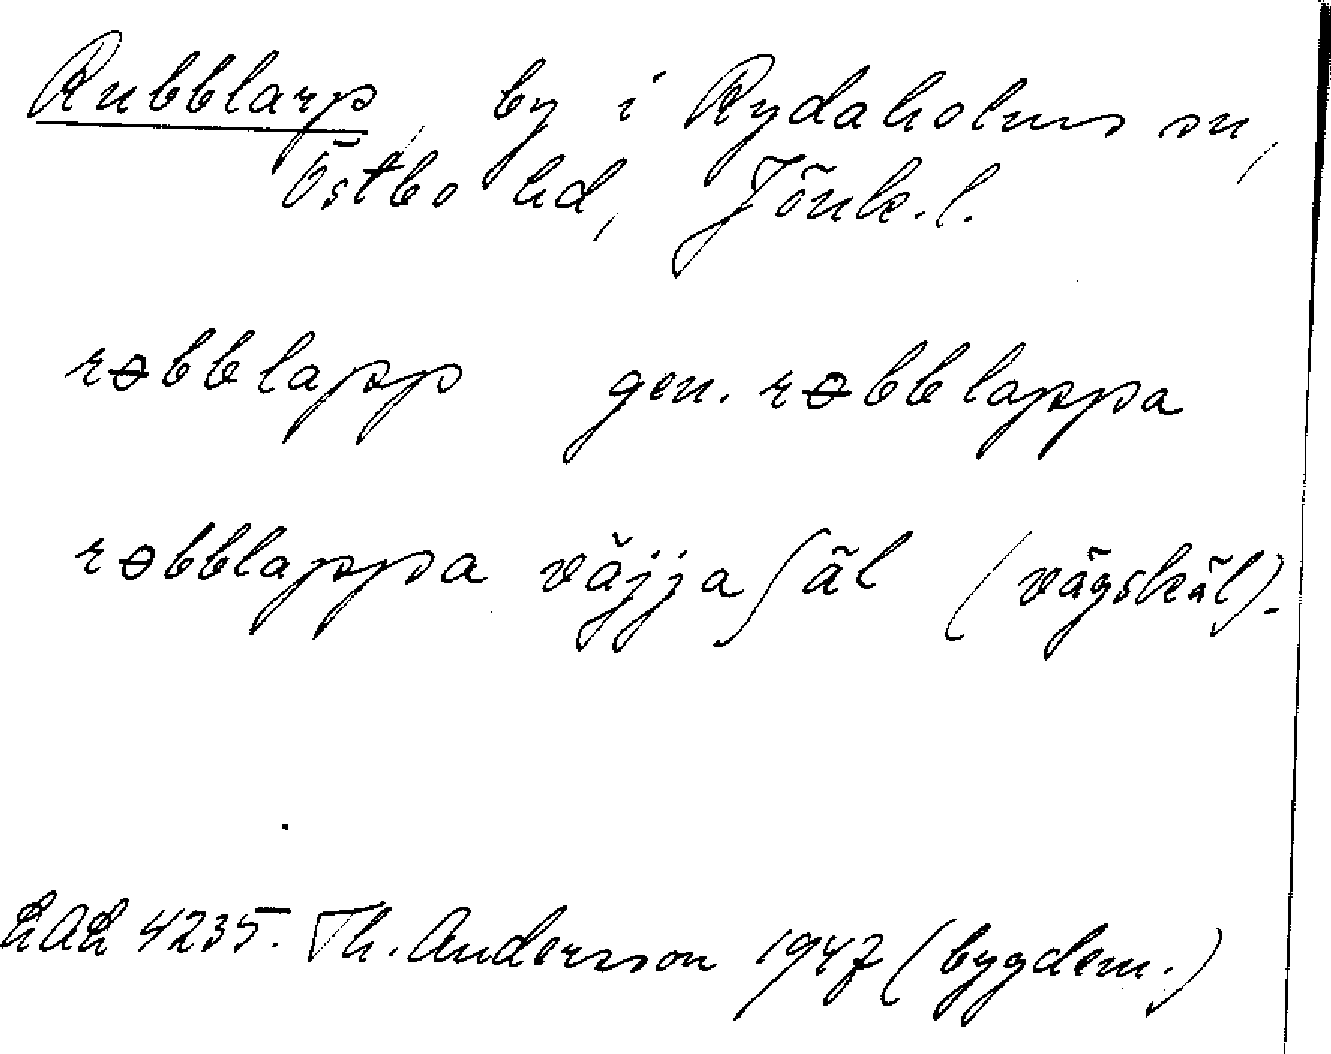 Rubblarp, by i Rydaholms sn,
Östbo hd, Jönk. l.
rɵbblapp gen. rɵbblappa
rɵbblappa väjjaʃäl (vägskäl).
LAL 4235. Th. Andersson 1947 (bygdem.)